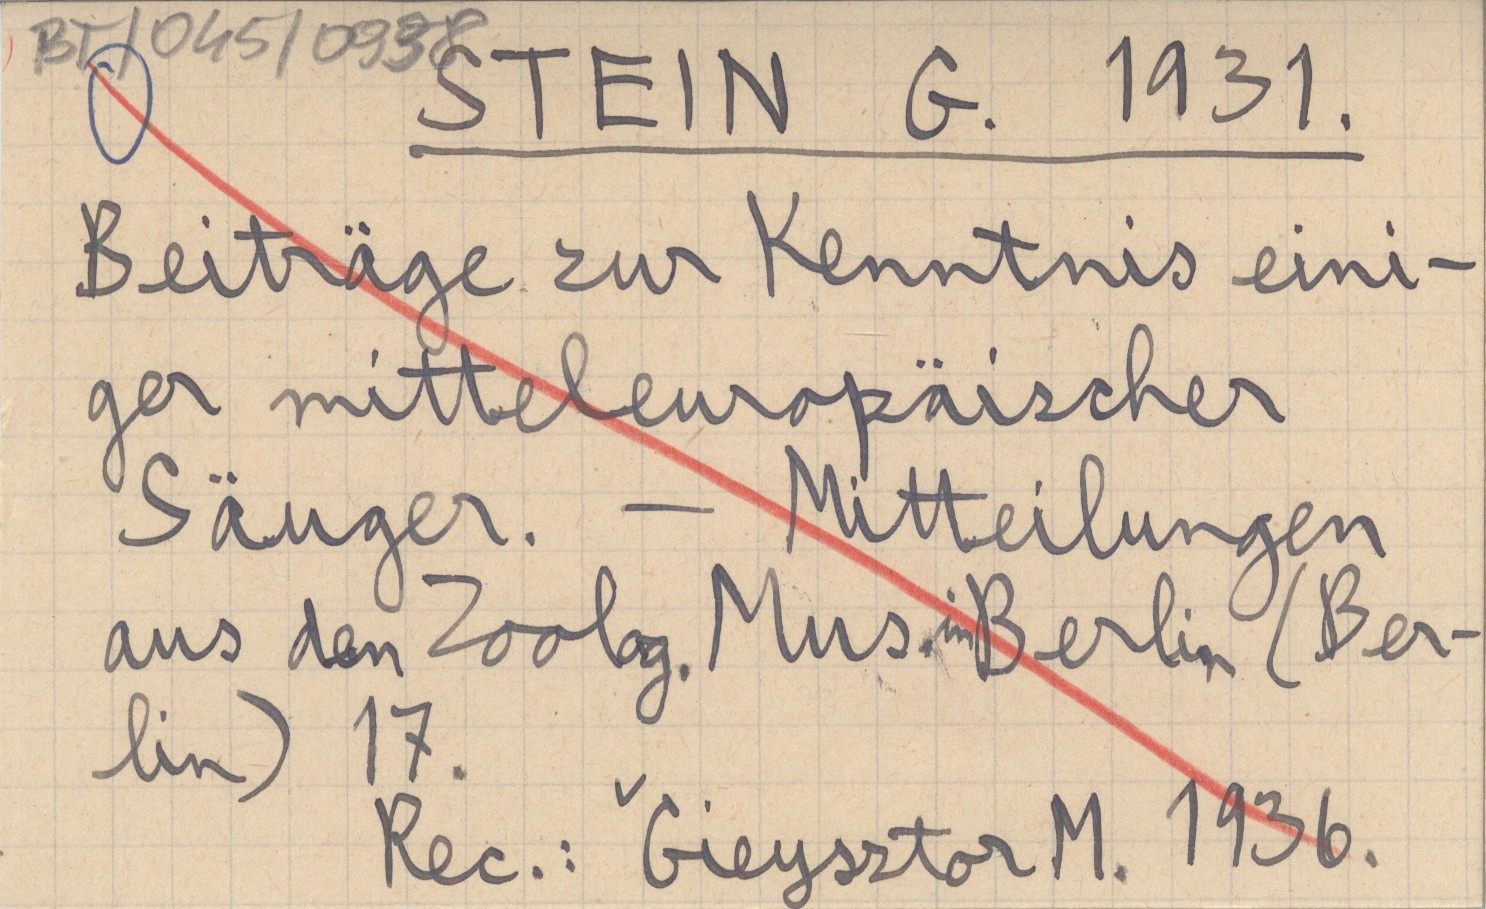 BT/045/0938
STEIN G. 1931.
Beiträge zur Kenntnis eini-
ger mitteleuropäischer
Säuger. — Mitteilungen
aus den Zoolog. Mus. in Berlin (Ber-
lin) 17.
Rec.: Gieysztor M. 1936.